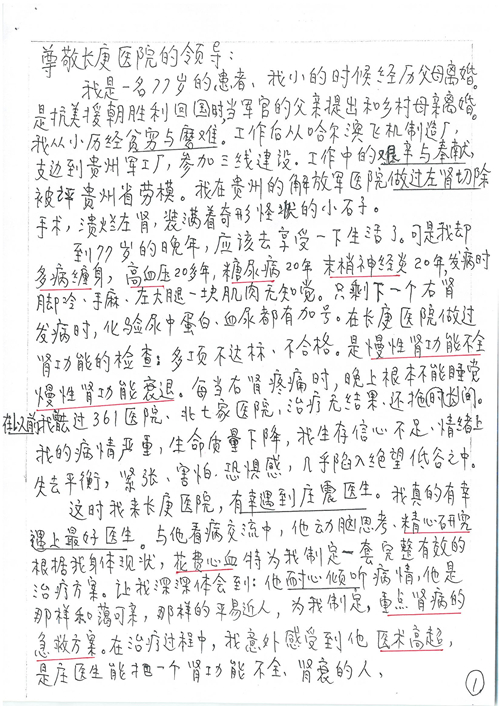 尊敬长庚医院的领导：
我是一名77岁的患者、我小的时候经历父母离婚。
是抗美援朝胜利回国时当军官的父亲提出和乡村母亲离婚。
我从小历经贫穷与磨难。工作后从哈尔滨飞机制造厂，
支边到贵州军工厂，参加三线建设。工作中的艰辛与奉献，
被评贵州省劳模。我在贵州的解放军医院做过左肾切除
手术，溃烂左肾，装满着奇形怪状的小石子。
到77岁的晚年，应该去享受一下生活了。可是我却
多病缠身，高血压20多年，糖尿病20年 末梢神经炎20年，发病时
脚冷、手麻、左大腿一块肌肉无知觉。只剩下一个右肾
发病时，化验尿中蛋白、血尿都有加号。在长庚医院做过
肾功能的检查：多项不达标、不合格。是慢性肾功能不全
慢性肾功能衰退。每当右肾疼痛时，晚上根本不能睡觉
在以前我去过361医院、北七家医院，治疗无结果、还拖时间。
我的病情严重，生命质量下降，我生存信心不足、情绪上
失去平衡，紧张、害怕、恐惧感，几乎陷入绝望低谷之中。
这时我来长庚医院，有幸遇到庄震医生。我真的有幸
遇上最好医生。与他看病交流中，他动脑思考、精心研究
根据我身体现状，花费心血特为我制定一套完整有效的
治疗方案。让我深深体会到：他耐心倾听病情，他是
那样和蔼可亲，那样的平易近人，为我制定，重点肾病的
急救方案。在治疗过程中，我意外感受到他医术高超，
是庄医生能把一个肾功能不全、肾衰的人、
1